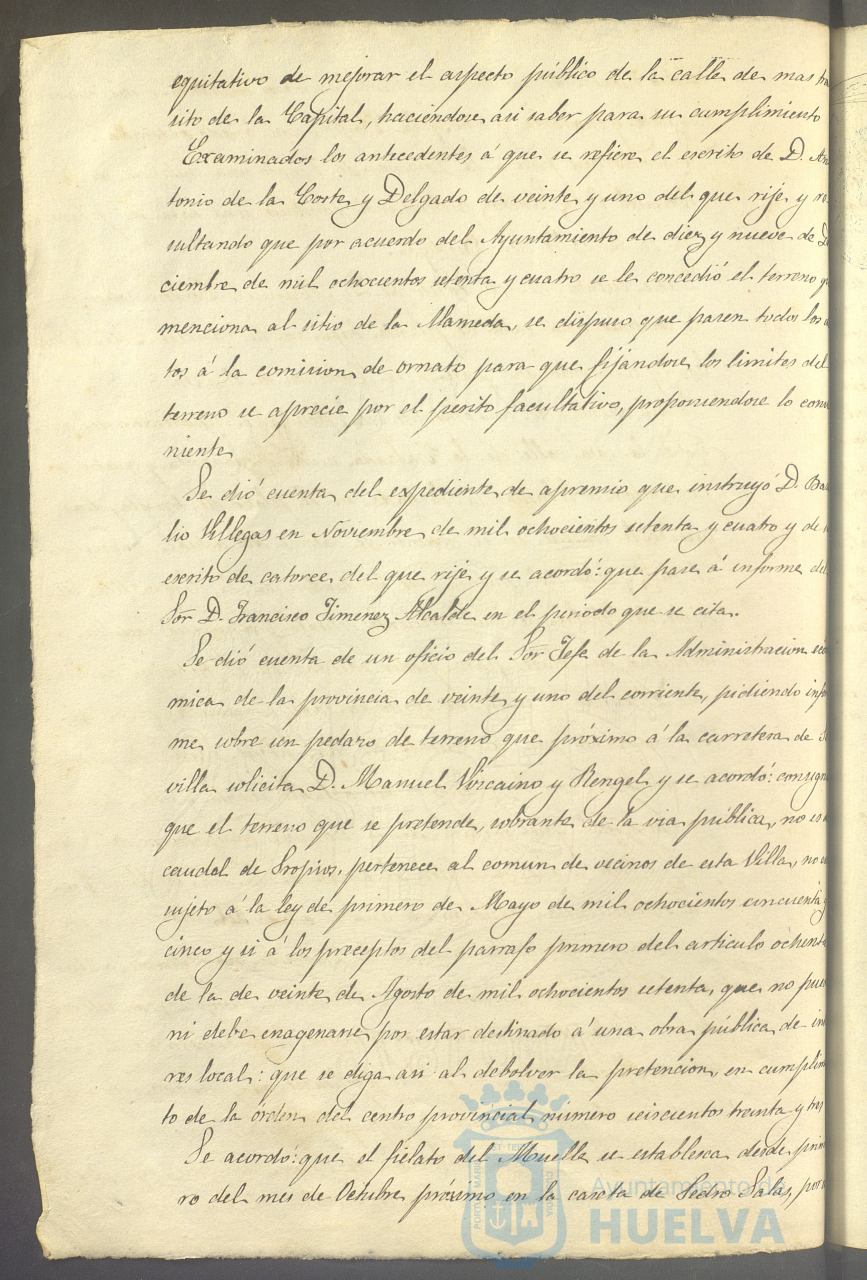 equitativo de mejorar el aspecto público de la calle de mas tra
sito de la Capital, haciendose asi saber para su cumplimiento
Examinados los antecedentes á que se refiere el escrito de D. An
tonio de la Corte y Delgado de veinte y uno del que rije y re
sultando que por acuerdo del Ayuntamiento de diez y nueve de Di
ciembre de mil ochocientos setenta y cuatro se le concedió el terreno q
menciona al sitio de la Alameda, se dispuso que pasen todos los
tos á la comision de ornato para que fijandose los limites del
terreno se aprecie por el perito facultativo, proponiendose lo conve
niente
Se dió cuenta del expediente de apremio que instruyó D. Bas
lio Villegas en Noviembre de mil ochocientos setenta y cuatro y de
escrito de catorce del que rije y se acordó: que pase á informe del
Sor D. Francisco Jimenez Alcalde en el periodo que se cita.
Se dió cuenta de un oficio del Sor Jefe de la Administracion eco
mica de la provincia de veinte y uno del corriente, pidiendo infor
me sobre un pedazo de terreno que próximo á la carretera de Se
villa solicita D. Manuel Vizcaino y Rengel y se acordó: consign
que el terreno que se pretende, sobrante de la via pública, no es
caudal de Propios, pertenece al comun de vecinos de esta Villa, no
sujeto á la ley de primero de Mayo de mil ochocientos cincuenta y
cinco y si á los preceptos del parrafo primero del articulo ochenta
de la de veinte de Agosto de mil ochocientos setenta, que no pue
ni debe enagenarse por estar destinado á una obra pública de in
res local: que se diga asi al debolver la pretencion, en cumplim
to de la órden del centro provincial numero seiscientos treinta y tres
Se acordó: que el fielato del Muelle se establesca desde prime
ro del mes de Octubre próximo en la caseta de Pedro Salas, por
Ayuntamiento de
HUELVA